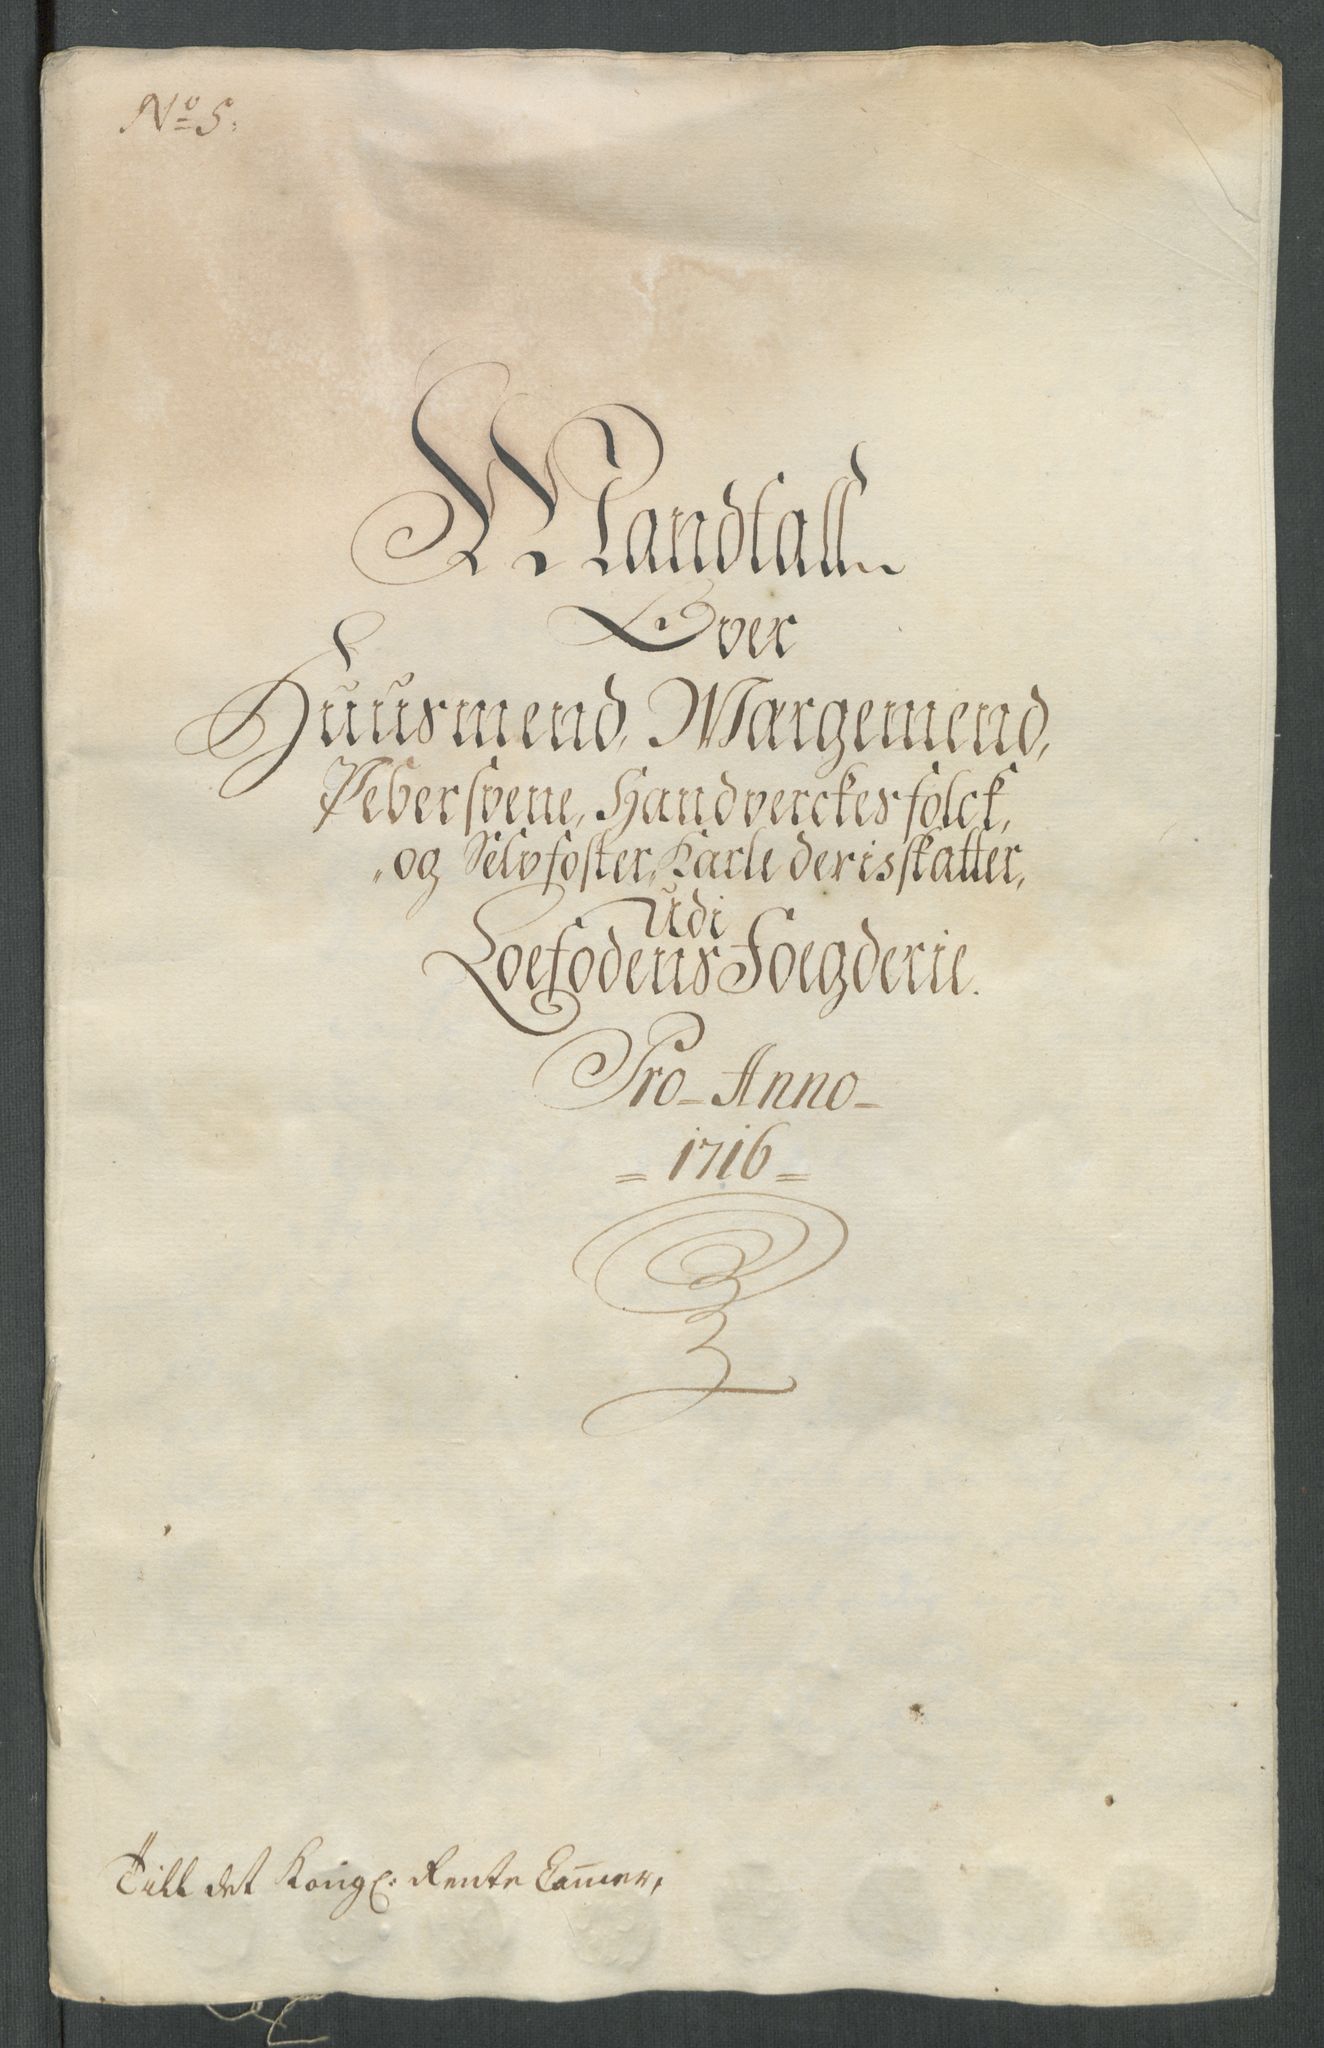 No 5.
Mandtall
Over
Huusmend, Margemend,
Pebersvene, Handverckesfolck,
og Selvfoster Karle deris skatter,
Udi
Loefodens Foegderie.
Pro Anno
1716
Till det Kongl: Rente Cammer,